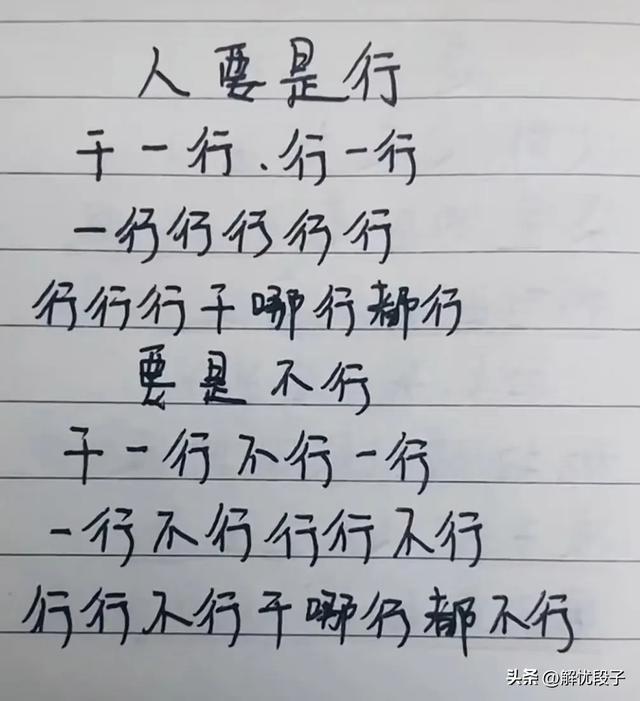 人要是行
干一行、行一行
一行行行行行
行行行干哪行都行
要是不行
干一行不行一行
一行不行行行不行
行行不行干哪行都不行
头条 @解忧段子